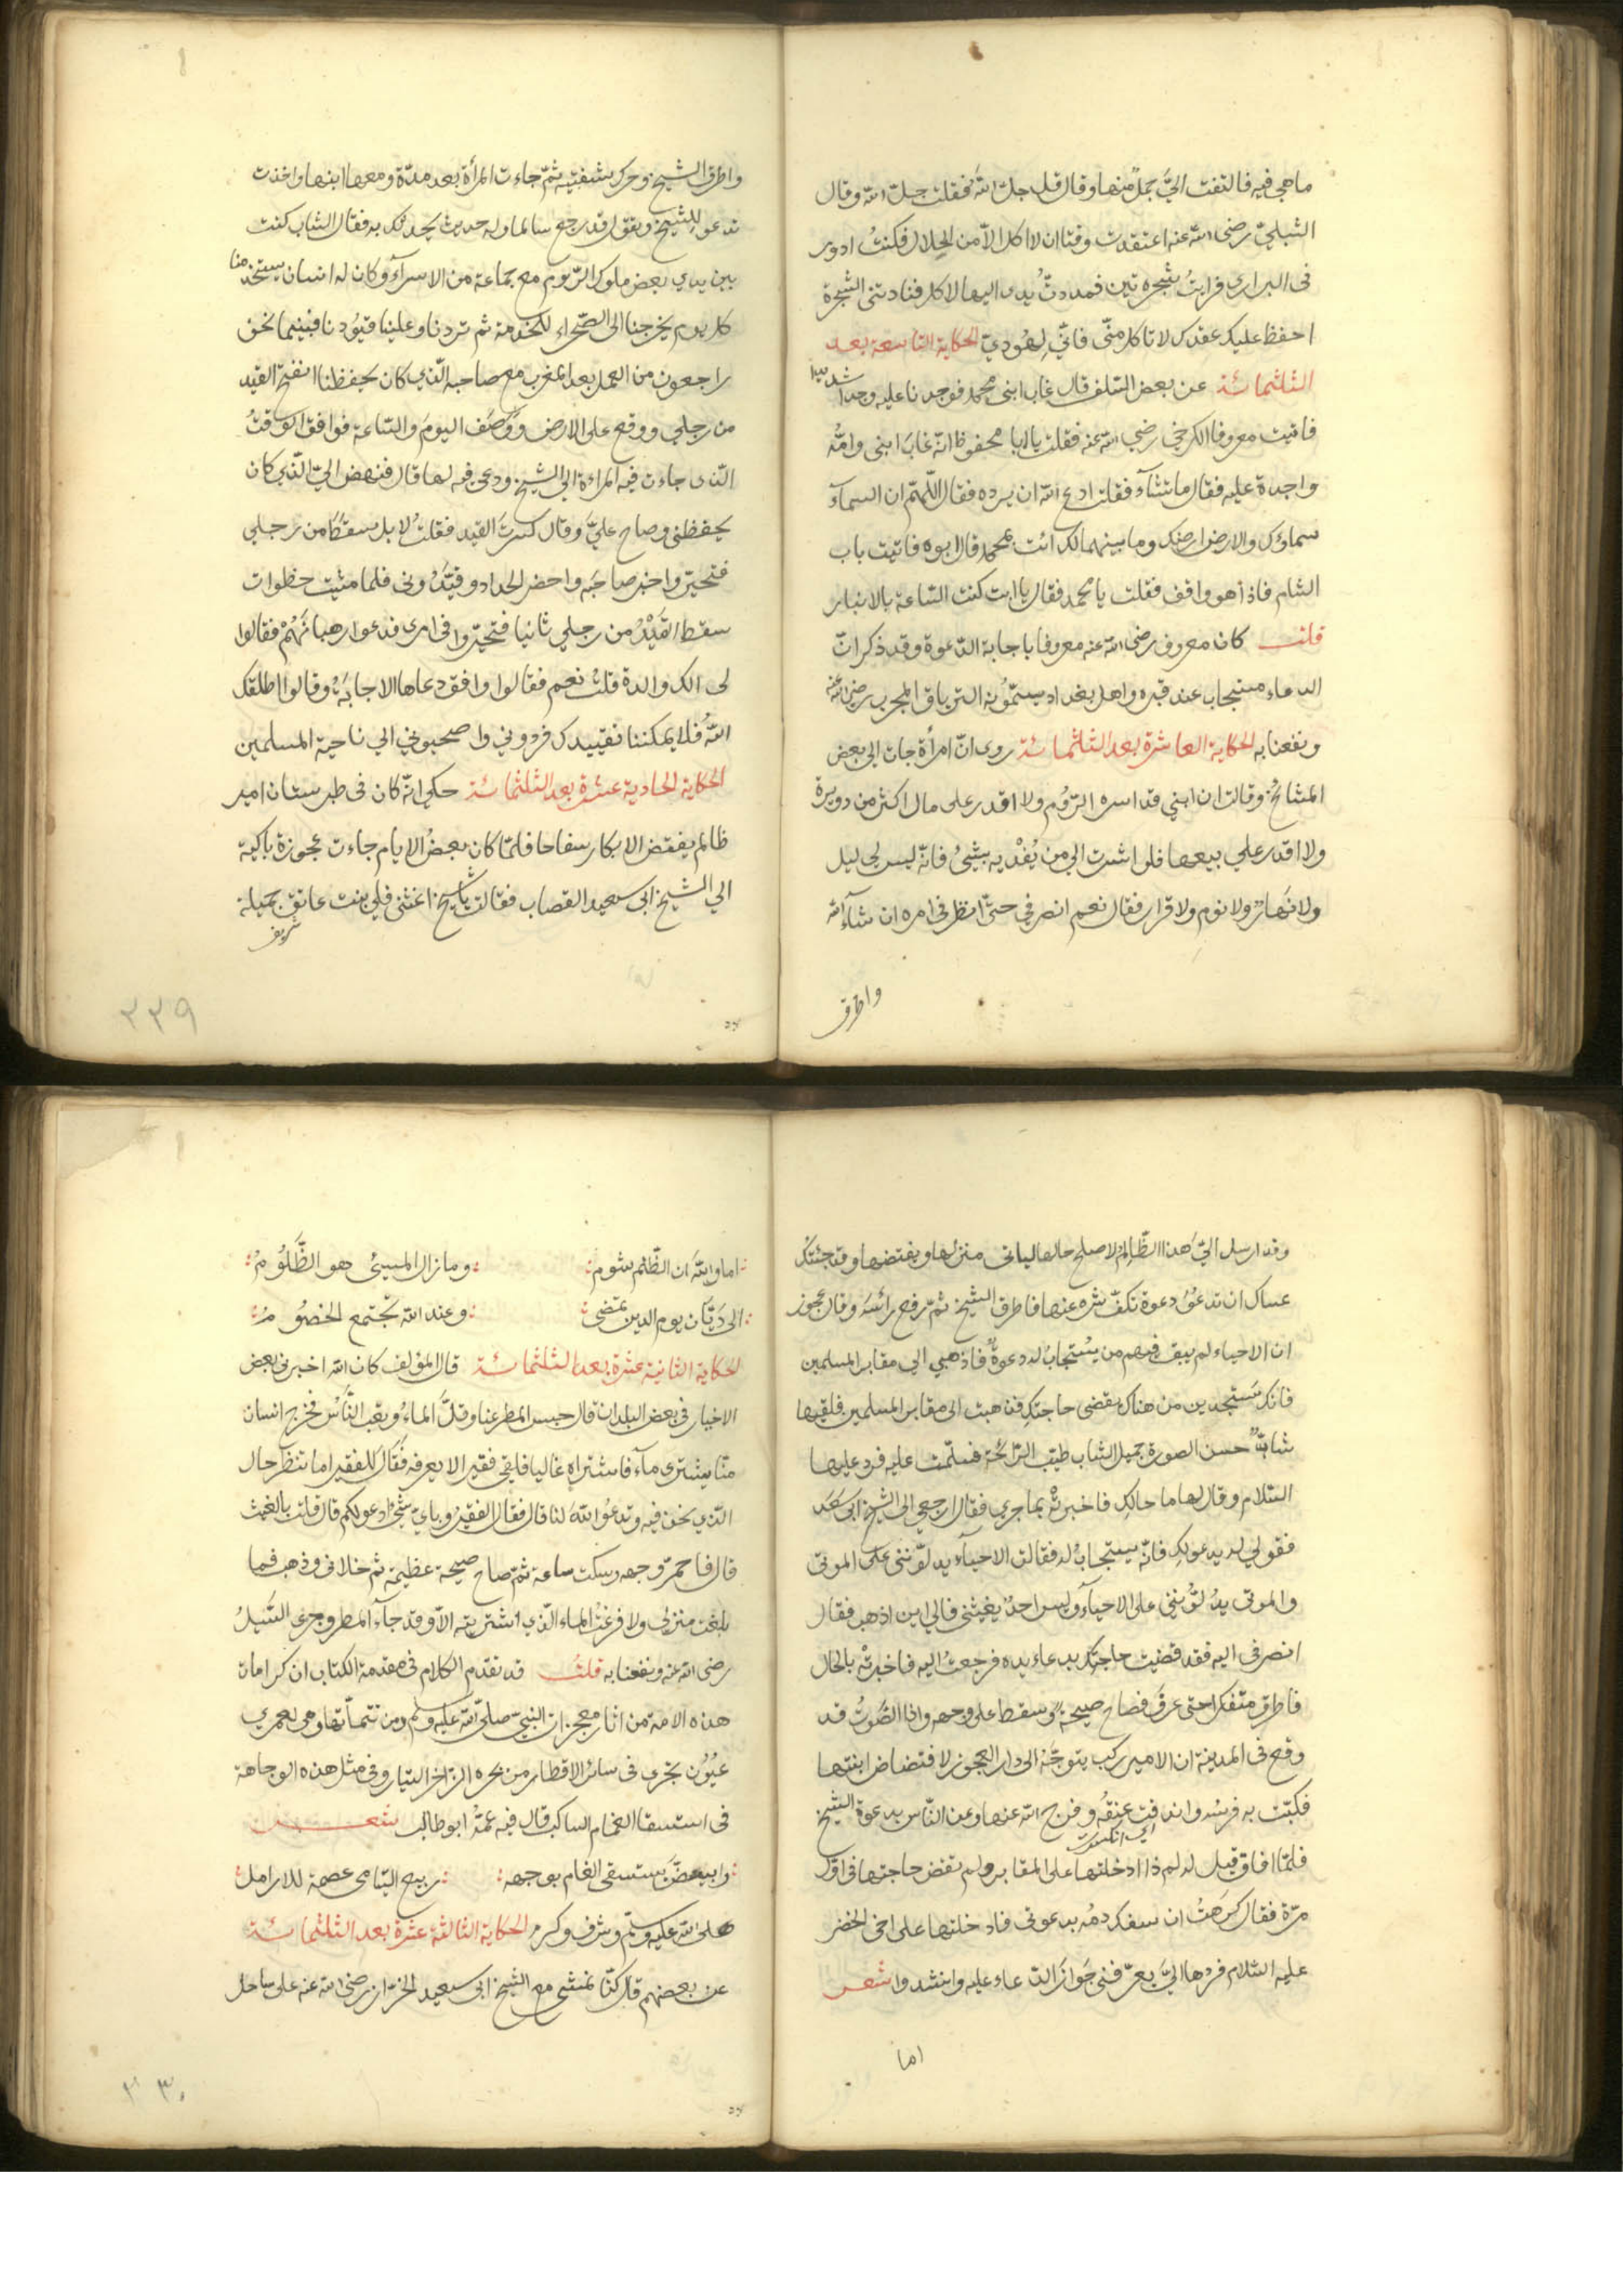 ما هي فيه فالتفت اليّ جمل منها وقال قل جل الله فقلت جلّ الله وقال
الشبليّ رضى الله عنه اعتقدت وقتا ان لا اكل الّا من الحلال فكنتُ ادور
فى البرارى فرايتُ شجرة تين فمددتُ يدى اليها لاكل فنادتنى الشجرة
احفظ عليك عقدك لا تاكل منّى فانّي ليهُوديّ الحكاية التاسعة بعد
الثلثمائة عن بعض السّلف قال غاب ابنى محمد فوجدنا عليه وجدا شديدا
فاتيت معروفا الكرخي رضي الله عنه فقلت يا ابا محفوظ انّه غابَ ابنى وامُّه
واجدة عليه فقال ما تشآء فقلت ادع الله ان يرده فقال اللّهمّ ان السمآء
سماؤك والارض ارضك وما بينهما لك ائت بمحمد قال ابوه فاتيت باب
الشام فاذا هو واقف فقلت يا محمد فقال يا ابت كنت السّاعة بالانبار
قلت كان معروف رضى الله عنه معروفا باجابة الدّعوة وقد ذكر انّ
الدعاء مستجاب عند قبره واهل بغداد يسمّونه الترياق المجرب رضى الله عنه
ونفعنا به الحكاية العاشرة بعد الثلثمائة روى انّ امرأة جات الى بعض
المشائخ وقالت ان ابني قد اسره الرّوُم ولا اقدر على مال اكثر من دويرة
ولا اقدر علي بيعها فلو اشرت الي من يُفْديه بشيئ فانّه ليس لي ليل
ولا نَهارٌ ولا نوم ولا قرار فقال نعم انصرفي حتّى انظر فى امره ان شآء الله
واطرق
واطرق الشيخ وحرك شفتيه ثمّ جاءت المرأة بعد مدّة ومعها ابنها واخذت
تدعو للشيخ وتقول قد رجع سالما وله حديث يحدثك به فقال الشاب كنت
بين يدي بعض ملوك الرّوم مع جماعة من الاسرآء وكان له انسان يستخدمنا
كل يوم يخرجنا الى الصّحراء للخدمة ثم تردنا وعلينا قيُودنا فبينما نحن
راجعون من العمل بعد المغرب مع صاحبه الّذي كان يحفظنا انفتح القيد
من رجلي ووقع على الارض وَوَصَف اليومَ والسّاعة فوافق الوقتُ
الّذى جاءت فيه المراءة الي الشيخ ودعى فيه لها قال فنهض اليّ الّذي كان
يحفظنى وصاح عليَّ وقال كسرتَ القيد فقلتُ لا بل سقط من رجلي
فتحيّر واخبر صاحبَه واحضر الحداد وقيّدُونى فلما مشيت خطوات
سقط القَيْدُ من رجلي ثانيا فتحيّروا فى امرى فدعوا رهبانَهُمْ فقالوا
لى الك والدة قلتُ نعم فقالوا وافق دعاها الاجابَةُ وقالوا اطلقك
اللهُ فلا يمكننا نقييدك فردوني واصحبوني الي ناحية المسلمين
الحكاية الحادية عشرة بعد الثلثمائة حكي انّه كان فى طبرستان امير
ظالم يفتض الابكار سفاحا فلمّا كان بعضُ الايام جاءت عجوزة باكية
الي الشيخ ابى سعيد القصاب فقالت يا شيخ اغثنى فلي بنت عاتق جميلة
٣٣٩
وقد ارسل اليّ هذا الظّالِمُ لاصلح حالها لياتى منزلها ويفتضها وقد جئتك
عساك ان تدعُوَ دعوة تكفّ شره عنها فاطرق الشيخ ثمّ رفع رائسَه وقال عجوز
ان الاحياء لم يبق فيهم من يُستجابُ له دعوةٌ فاذهبي الي مقابر المسلمين
فانك سَتجدين من هناك يقضى حاجتك فذهبت الى مقابر المسلمين فلقيها
شابٌّ حسن الصورة جميل الثياب طيّب الرّائحة فسلّمت عليه فرد عليها
السّلام وقال لها ما حالكِ فاخبرتْه بما جرى فقال ارجعي الى الشيخ ابى سَعيد
فقولي له يدعو لك فانّه يستجابُ له فقالت الاحيآء يدلّوننى على الموتى
والموتى يدُلّوُننِى على الاحيآء وليس احدٌ يغيثنى فالي اين اذهب فقال
انصرفى اليه فقد قضيت حاجتك بدعاء يده فرجعتْ اليه فاخبرتْه بالحال
فاطرق متفكرا حتى عرقَ فصاح صيحةً وسقط على وجهه واذا الصَّوتُ قد
وقع فى المدينة ان الامير ركب يتوجَّهُ الى دار العجوز لافتضاض ابنتها
فكبّت به فرسُه واندقت عنقُه وفرج الله عنها وعن النّاس بدعوة الشيخ
اي انكسرت
فلمّا افاق قيل له لم ذا ادخلتها على المقابر ولم تقض حاجتها فى اوّل
مرّة فقال كرهتُ ان سفك دمُه بدعوتى فادخلتها على اخى الخضر
عليه السّلام فردها اليّ يعرّفنى جَوازَ الدّعاء عليه وانشدوا شعر
اما
اما والله ان الظّلم شوم وما زال المسيئى هو الظَّلُومُ
الى دَيَّان يوم الدين نمضى وعند الله تجتمع الخصُومُ
الحكاية الثانية عشرة بعد الثلثمائة قال المؤلف كان الله اخبرنى بعض
الاخيار فى بعض البلدان قال حبس المطر عنا وقلَّ الماءُ وتعب النَّاسُ فخرج انسان
منّا يشترى مآء فاشتراه غاليا فلقى فقيرا لا يعرفه فقَالَ للفقير اما تنظر حال
الّذي نحن فيه وتدعُوُ اللهَ لنا قال فقال الفقيرُ وباي شيئٍ ادعو لكم قال قلت بالغيث
قال فاحمرّ وجهه وسكت ساعة ثمّ صاح صيحة عظيمة ثم خلانى وذهب فما
بلغت منزلى ولا فرغتُ الماء الّذي اشتريته الّا وقد جآء المطر وجرى السَّيلُ
رضى الله عنه ونفعنا به قلتُ قد تقدم الكلام فى مقدمة الكتاب ان كرامات
هذه الامة من اثار معجزات النبىّ صلّى الله عليه وسلم ومن تتمّاتها وهى لعمري
عيُوُن تجرى فى سائر الاقطار من بحره الزاخر التيار وفى مثل هذه الوجاهة
فى استسقا الغمام الساكب قال فيه عمّهُ ابو طالب شعر
وابيضَ يستسقى الغمام بوجهه ربيع اليتامى عصمة للارامل
صلى الله عليه وسلّم وشرف وكرم الحكاية الثالثة عشرة بعد الثلثمائة
عن بعضهم قال كنّا نمشي مع الشيخ ابى سعيد الخرّاز رضى الله عنه على ساحل